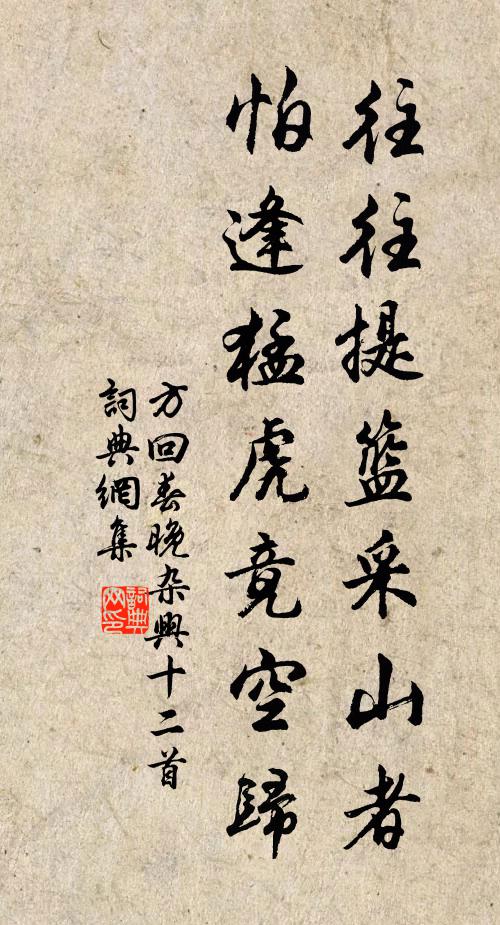 往往提籃采山者
怕逢猛虎竟空歸
方回春晚杂興十二首
詞典網集
詞典网印